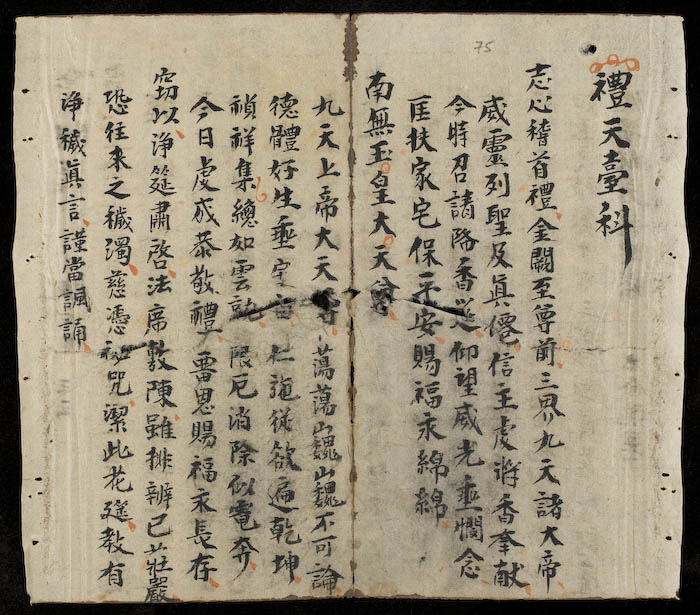 75
禮天臺科
志心稽首禮金闕至尊前三界九天諸大帝
威靈列聖及眞僊信主虔將香奉献
今時召請降香筵仰望威光垂憫念
匡扶家宅保平安賜福永綿綿
南無玉皇大天尊
九天上帝大天尊蕩蕩巍巍不可論
德體好生垂仁施從欲遍乾坤
禎祥集總如雲就限厄消除似電奔
今日虔成恭敬禮畱恩賜福永長存
窃以淨筵肅啓法席敷陳雖排辦已莊嚴
恐往來之穢濁慈憑秘咒潔此花筵教有
淨穢眞言謹當諷誦